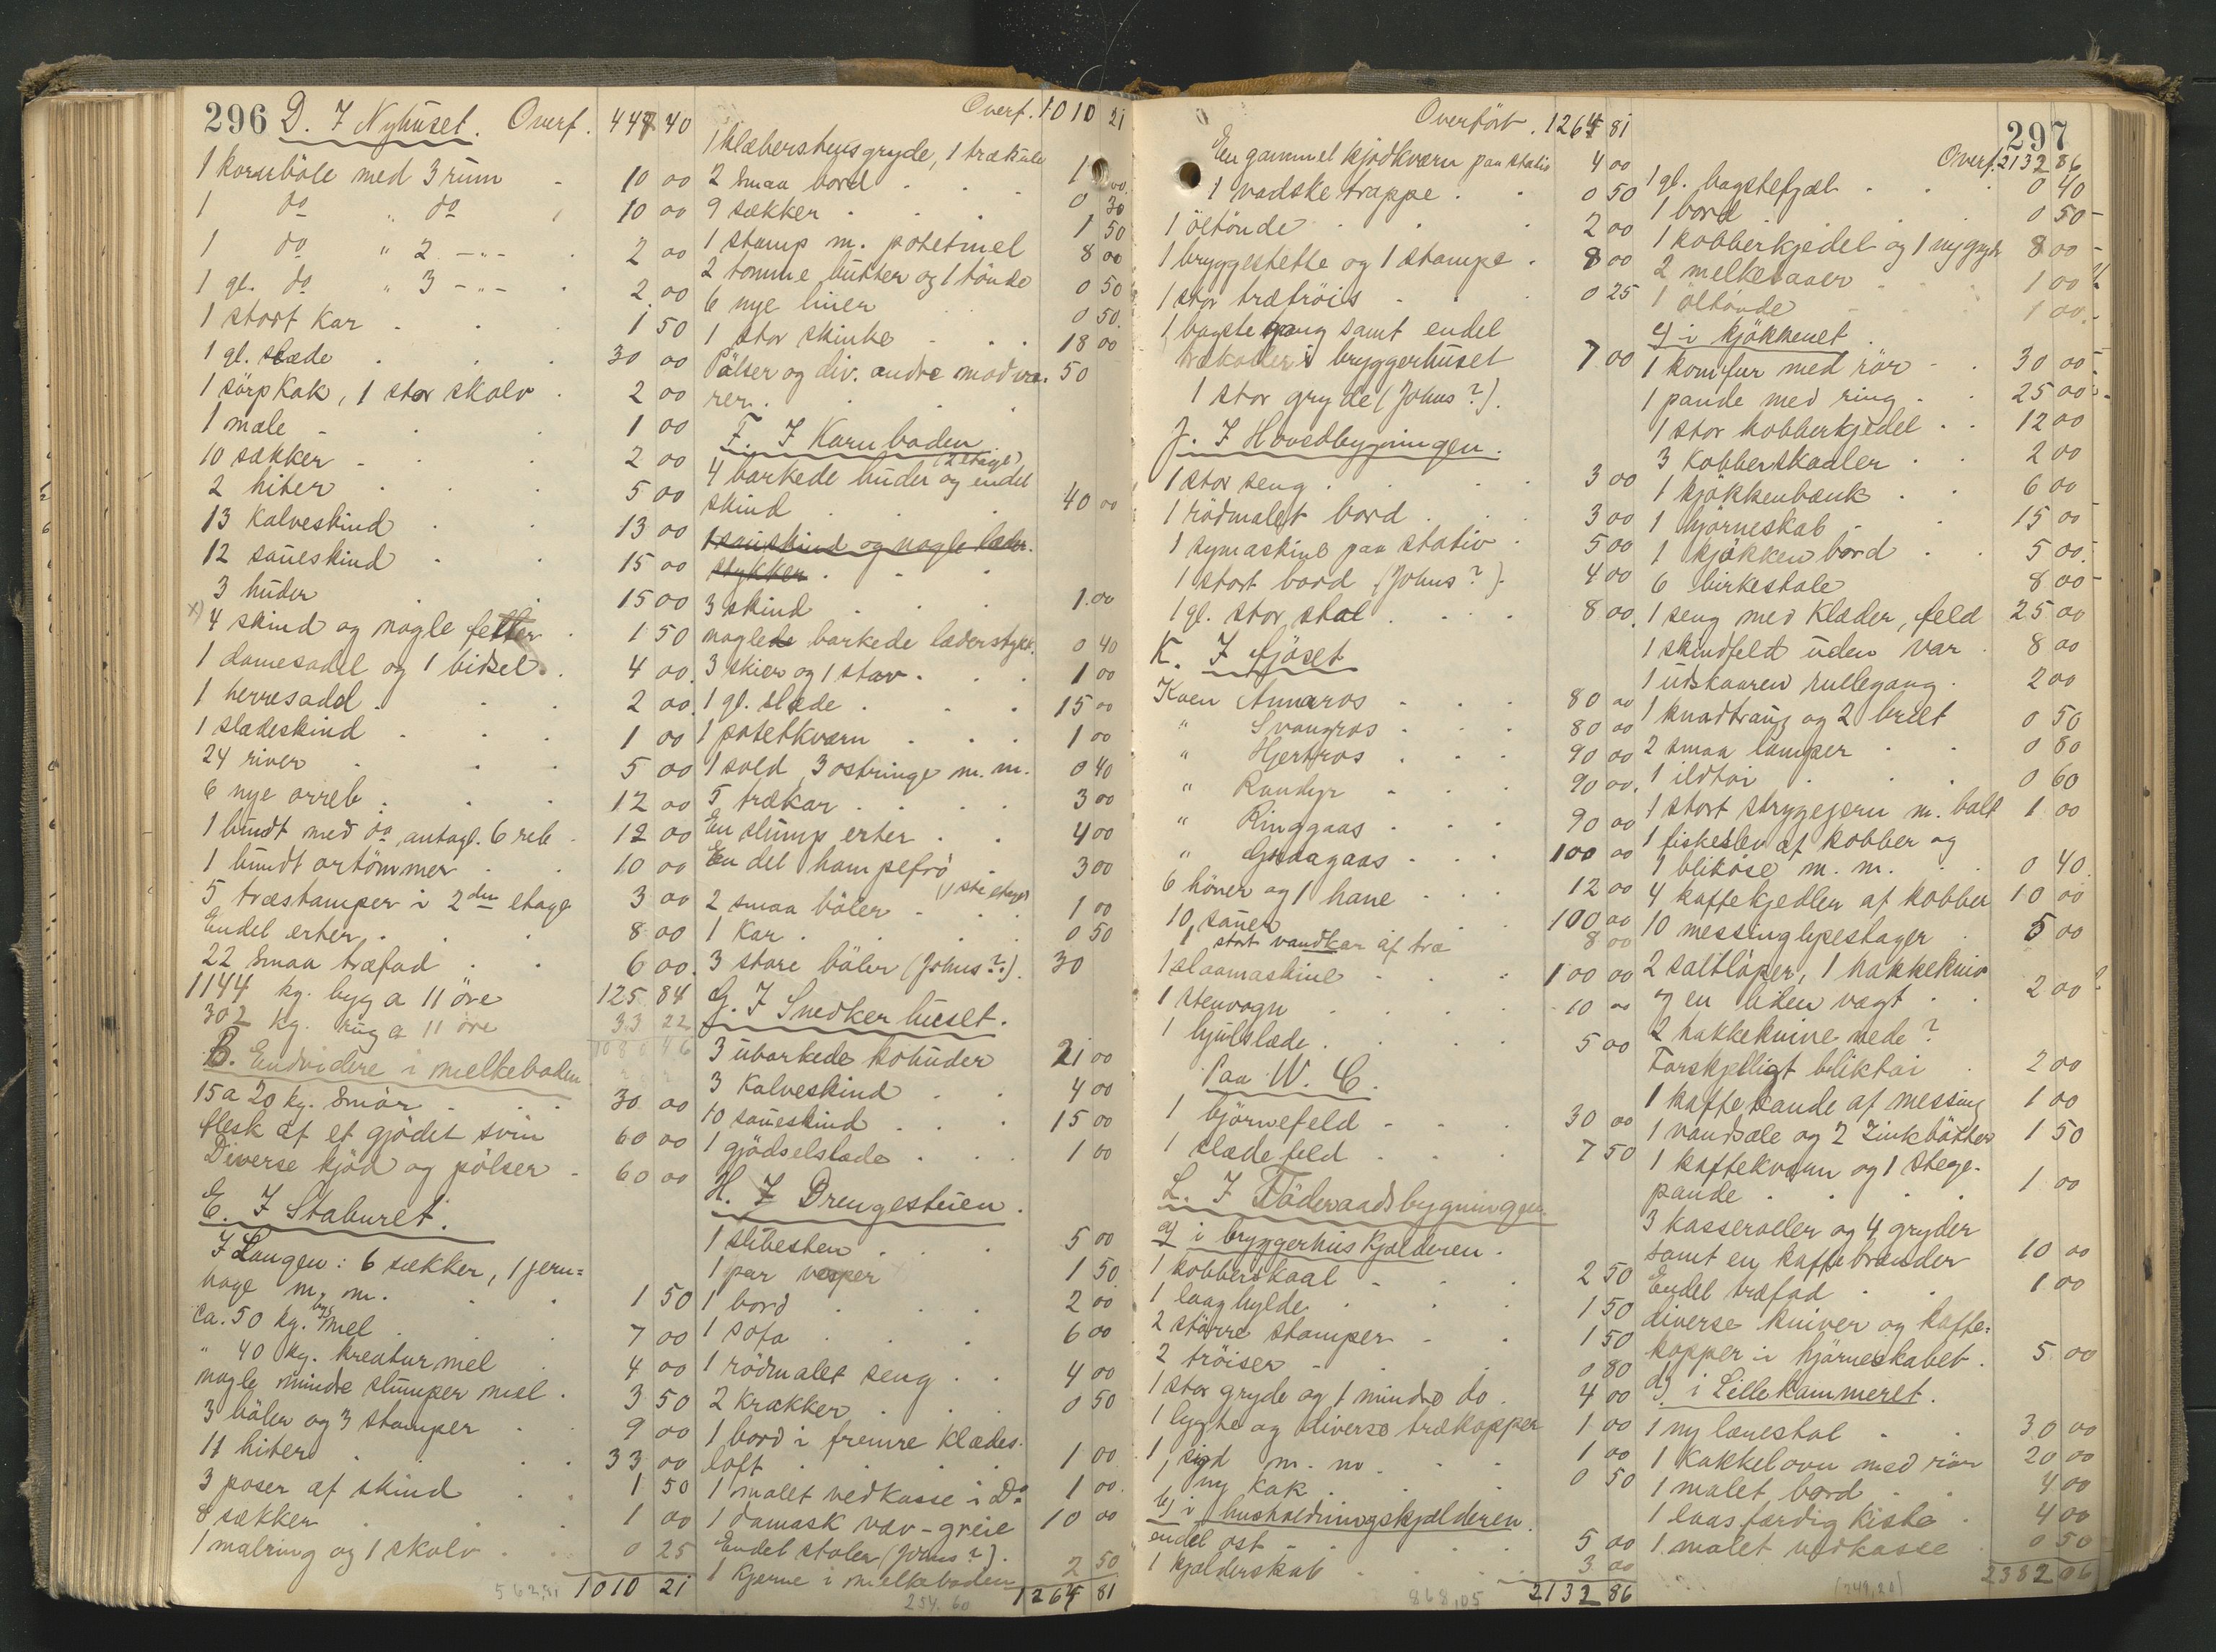 296 D. I Nyhuset. Overf. 447 40
1 kornböle med 3 rum - 10 00
1 do " do 10 00
1 do " 2 -"- 2 00
1 gl. do " 3 -"- 2 00
1 stort Kar 1 50
1 gl. slæde 30 00
1 sörpkak, 1 stor skolv 2 00
1 male 1 00
10 sækker 2 00
2 hiter 5 00
13 Kalveskind 13 00
12 saueskind 15 00
3 huder 15 00
x) 4 skind og nogle fetler 1 50
1 damesadel og 1 bidsel 4 00
1 herresadel 2 00
1 slædeskind 1 00
24 river 5 00
6 nye orreb 12 00
1 bundt med do, antagl. 6 reb 12 00
1 bundt ortömmer 10 00
5 træstamper i 2den etage 3 00
Endel erter 8 00
22 smaa træfad 6 00
1144 kg. byg a 11 öre 125 84
302 kg. rug a 11 öre 33 22
B. Endvidere i melkeboden
15 a 20 kg. Smör 30 00
flesk af et gjödet svin 60 00
Diverse kjöd og pölser - 60 00
E. I Staburet.
I Laugen: 6 sækker, 1 jern=
hage m. m. 1 50
Ca. 50 kg. byg mel 7 00
" 40 kg. kreaturmel 4 00
nogle mindre slumper mel 3 50
3 böler og 3 stamper 9 00
11 hiter 33 00
3 poser af skind 1 50
8 sækker 1 00
1 malring og 1 skolv 0 25
1010 21
Overf. 1010 21
1 klæberstensgryde, 1 trækule 1 00
2 smaa bord 0 30
9 sækker 1 50
1 stamp m. potetmel 8 00
2 tomme butter og 1 tönde 0 50
6 nye liner 0 50
1 stor skinke 18 00
Pölser og div. andre madva- 50
rer.
F. I Karnboden
(2 etage)
4 barkede huder og endel
skind 40 00
1 saueskind og nogle læder-
stykker
3 skind 1.00
noglede barkede læderstykk. 0 40
3 skier og 1 stav 1 00
1 gl. slæde 15 00
1 potetkværn 1 00
1 sold, 3 ostringe m. m. 0 40
5 trækar 3 00
En slump erter 4 00
En del hampefrö 3 00
(1ste etage)
2 smaa böler 1 00
1 Kar 0 50
3 store böler (Johns?). 30
G. I Snedkerhuset.
3 ubarkede kohuder 21 00
3 Kalveskind 4 00
10 saueskind 15 00
1 gjödselslæde 1 00
H. I Drengestuen.
1 slibesten 5 00
1 par vesper 1 50
1 bord 2 00
1 sofa 6 00
1 rödmalet seng 4 00
2 krakker 0 50
1 bord i fremre klædes-
loft 1 00
1 malet vedkasse i Do 1 00
1 damask væv-greie 10 00
Endel stoler (Johns?).
1 Kjerne i melkeboden 2 50
1264 81
Overfört 1264 81
En gammel kjödkværn paa stativ 4 00
1 vadsketrappe 0 50
1 öltönde 2 00
1 bryggestette og 1 stampe 8 00
1 stor trætröis 0 25
1 bagstegang samt endel
trækopper i bryggerhuset 7 00
1 stor gryde (Johns?).
J. I Hovedbygningen.
1 stor seng 3 00
1 rödmalet bord 3 00
1 symaskine paa stativ 5 00
1 stort bord (Johns?). 4 00
1 gl. stor stol 8 00
K. I fjöset
Koen Annaros 80 00
" Svangros 80 00
" Hjertros 90 00
" Randyr 90 00
" Ringgaas 90 00
" Graagaas 100 00
6 höner og 1 hane 12 00
10 sauer 100 00
1 stort vandkar af træ 8 00
1 slaamaskine 100 00
1 stenvogn 10 00
1 hjulslæde 5 00
Paa W. C.
1 björnefeld 30 00
1 slædefeld 7 50
L. I Föderaadsbygningen
a) i bryggerhuskjælderen.
1 kobberskaal 2 50
1 laaghylde 1 50
2 större stamper 1 50
2 tröiser 0 80
1 stor gryde og 1 mindre do. 4 00
1 lygte og diverse trækopper 1 00
1 sigd m. m. 1 00
1 ny kak 0 50
b) i husholdningskjælderen.
endel ost 5 00
1 kjælderskab 3 00
868,05 2132 86
297
Overf. 2132 86
1 gl. bagstefjæl 0 40
1 bord 0 50
1 kobberkjedel og 1 ny gryde 8 00
2 melkesaaer 1 00
1 öltönde 1 00
c) i kjökkenet
1 komfur med rör 30 00
1 pande med ring 25 00
1 stor kobberkjedel 12 00
3 Kobberskaaler 2 00
1 kjökkenbænk 6 00
1 hjörneskab 15 00
1 kjökkenbord 5 00
6 birkestole 8 00
1 seng med Klæder, feld 25 00
1 skindfeld uden var 8 00
1 udskaaren rullegang 2 00
1 knadtraug og 2 bret 0 50
2 smaa lamper 0 80
1 ildtöi 0 60
1 stort strygejern m. bolt 1 00
1 fiskeslev af kobber og
1 bliköse m. m. 0 40
4 kaffekjedler af kobber 10 00
10 messinglysestager 5 00
2 saltlöper, 1 hakkekniv
og en liden vægt 2 00
2 hakkeknive nede?
Forskjelligt bliktöi 2 00
1 kaffekande af messing 1 00
1 vandsæle og 2 Zinkbötter 1 50
1 kaffekværn og 1 stege-
pande 1 00
3 kasseroller og 4 gryder
samt en kaffebrænder 10 00
Endel træfad 1 00
diverse kniver og kaffe=
kopper i hjörneskabet 5 00
d) i Lillekammeret.
1 ny lænestol 30 00
1 Kakkelovn med rör 20 00
1 malet bord 4 00
1 laasfærdig kiste 4 00
1 malet vedkasse 0 50
(249,20) 2382 06